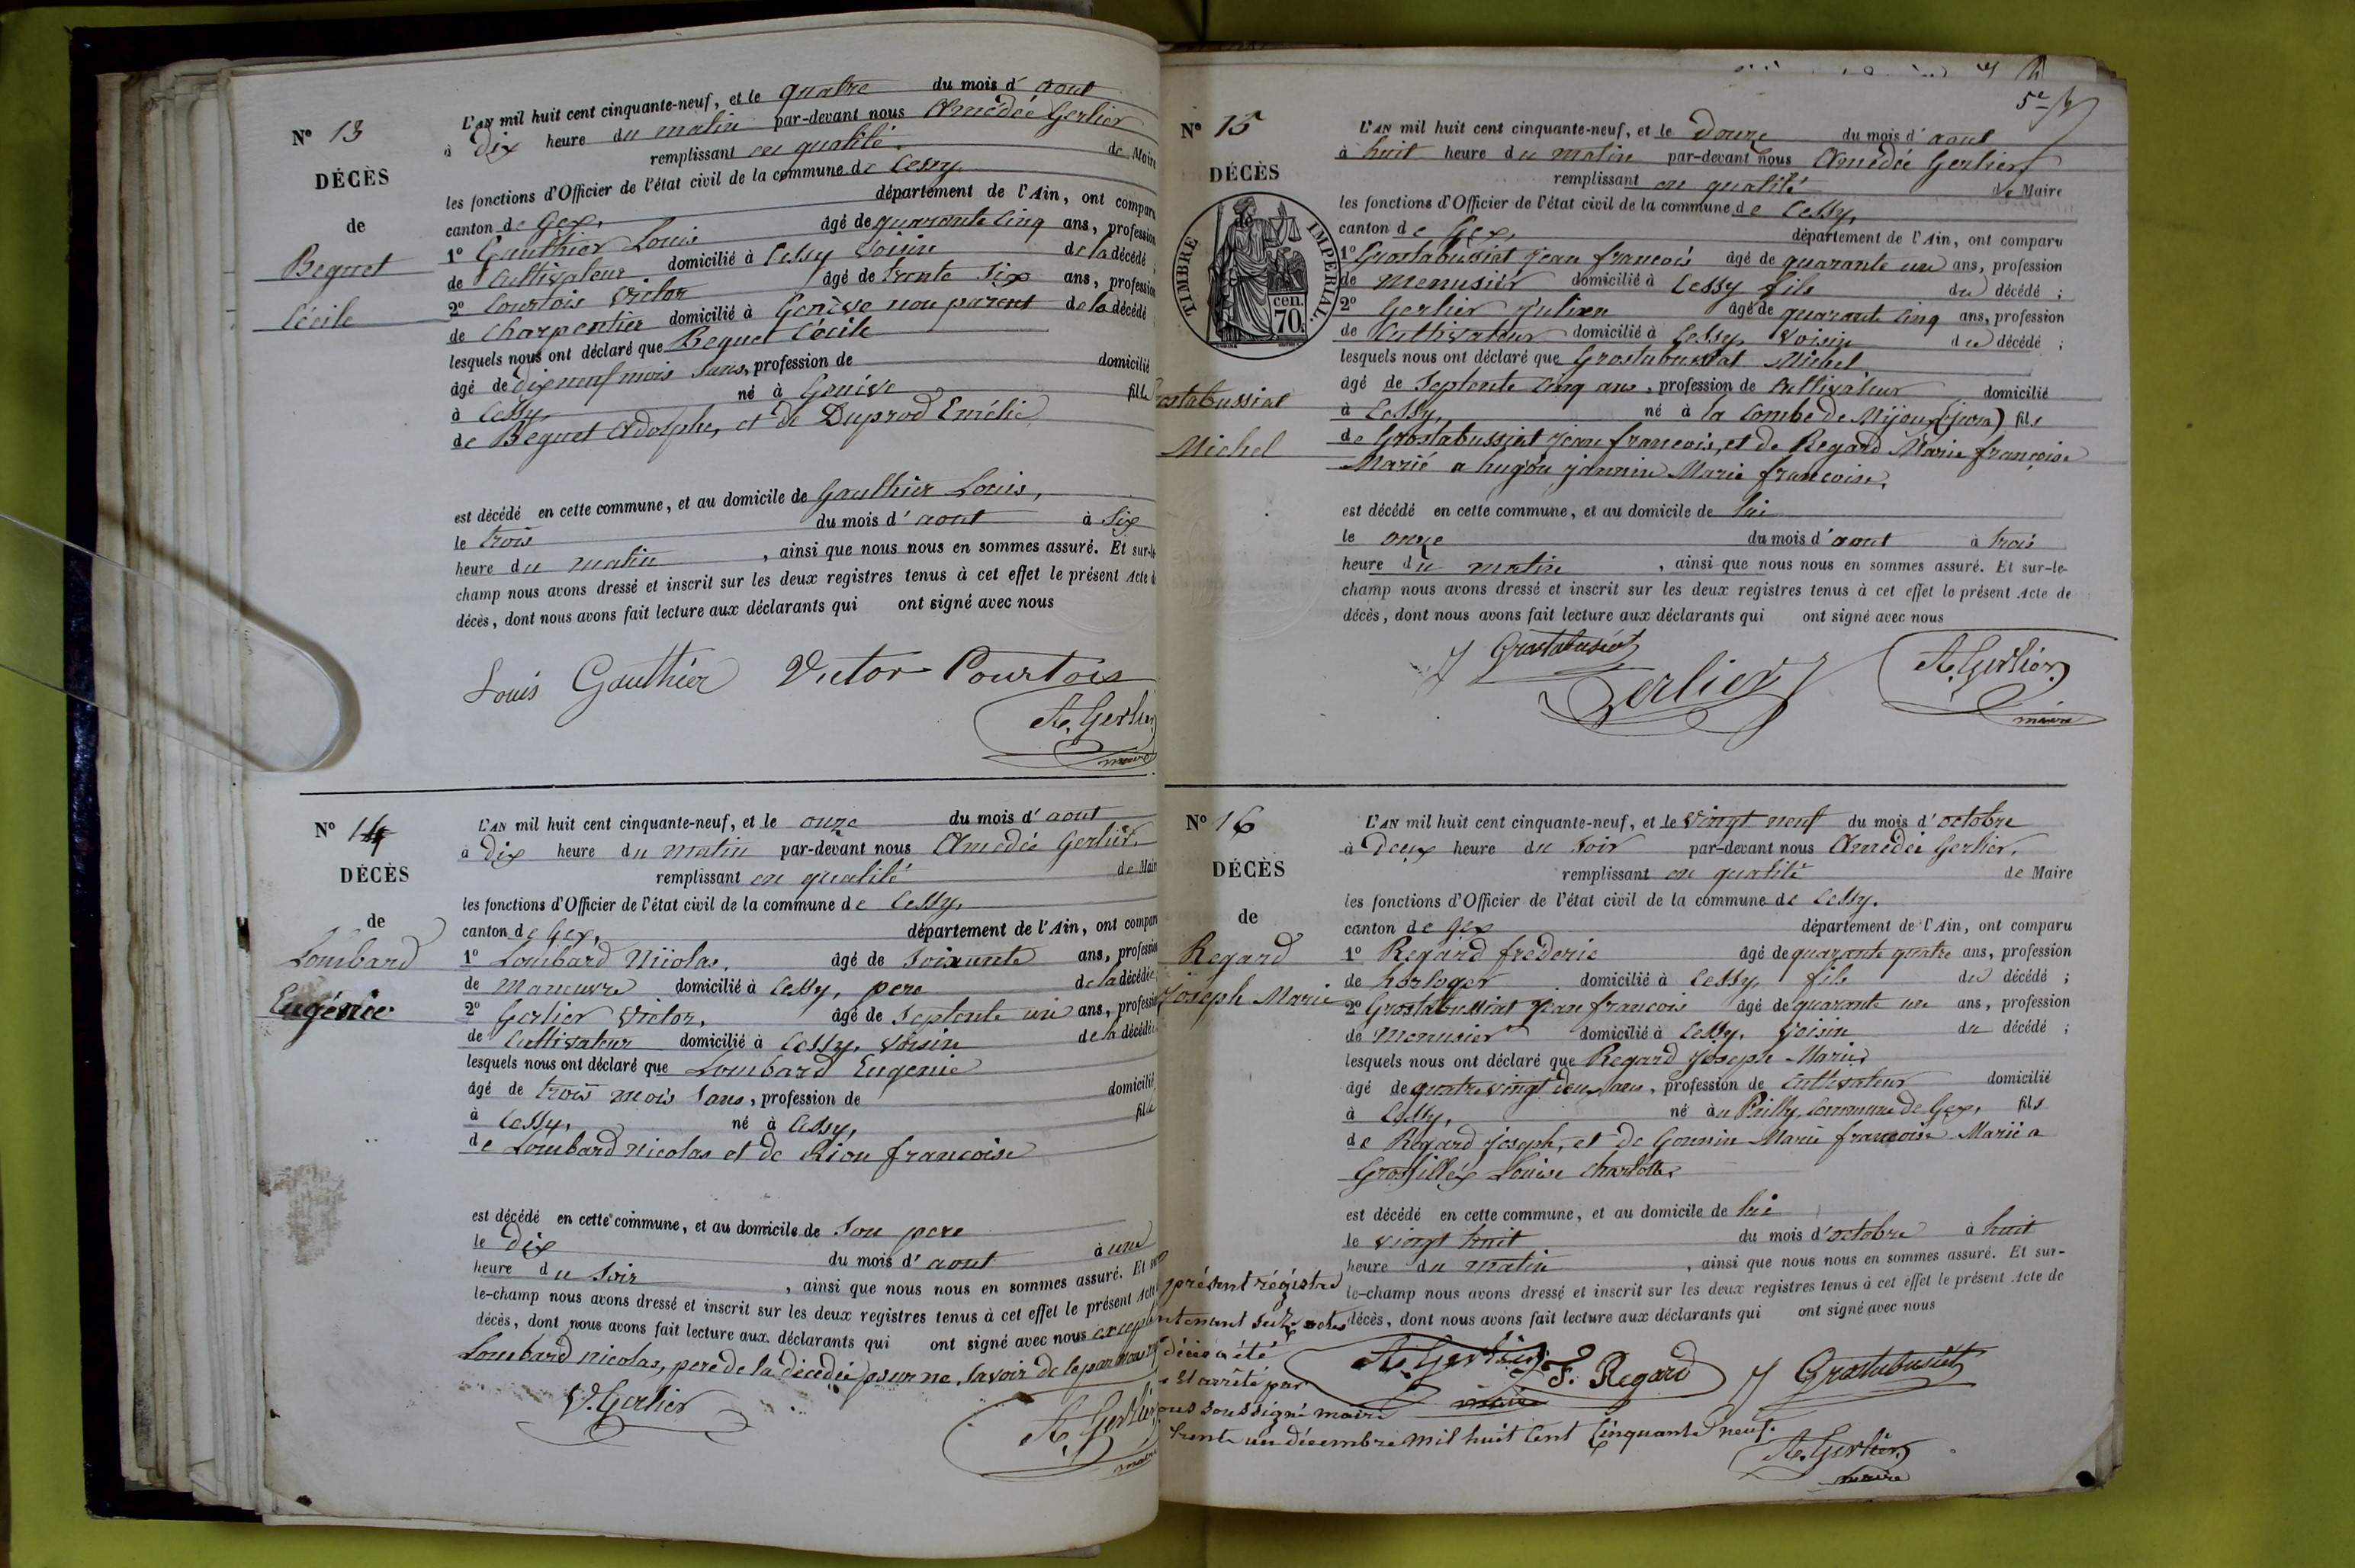 N° 13
DÉCÈS
de
Beguet
Cécile
L'AN mil huit cent cinquante-neuf, et le quatre du mois d'aout
à dix heure du matin par-devant nous Amédée Gerlier
remplissant en qualité de Maire
les fonctions d'Officier de l'état civil de la commune de Cessy
canton de Gex, département de l'Ain, ont comparu
1° Gauthier Louis âgé de quarante cinq ans, profession
de Cultivateur domicilié à Cessy Voisin de la décédé ;
2° Courtois Victor âgé de trente six ans, profession
de Charpentier domicilié à Genève non parent de la décédé
lesquels nous ont déclaré que Beguet Cécile
âgé de dix neuf mois sans, profession de domicilié
à Cessy, né à Genève fille
de Beguet Adolphe, et de Duprod Emélie
est décédé en cette commune, et au domicile de Gauthier Louis,
le trois du mois d'aout à six
heure du matin, ainsi que nous nous en sommes assuré. Et sur-le-
champ nous avons dressé et inscrit sur les deux registres tenus à cet effet le présent Acte de
décès, dont nous avons fait lecture aux déclarants qui ont signé avec nous
Louis Gauthier Victor Courtois
A. Gerlier
maire
N° 14
DÉCÈS
de
Lombard
Eugénie
L'AN mil huit cent cinquante-neuf, et le onze du mois d'aout
à dix heure du matin par-devant nous Amédée Gerlier,
remplissant en qualité de Maire
les fonctions d'Officier de l'état civil de la commune de Cessy,
canton de Gex, département de l'Ain, ont comparu
1° Lombard Nicolas, âgé de soixante ans, profession
de Maneuvre domicilié à Cessy, pere de la décédée
2° Gerlier Victor, âgé de septente un ans, profession
de Cultivateur domicilié à Cessy, Voisin de la décédée
lesquels nous ont déclaré que Lombard Eugenie
âgé de trois mois sans, profession de domicilié
à Cessy, né à Cessy, fille
de Lombard Nicolas et de Riou francoise
est décédé en cette commune, et au domicile de son pere
le dix du mois d'aout à une
heure du soir, ainsi que nous nous en sommes assuré. Et sur-
le-champ nous avons dressé et inscrit sur les deux registres tenus à cet effet le présent Acte
décès, dont nous avons fait lecture aux déclarants qui ont signé avec nous excepté
Lombard nicolas, pere de la décédée pour ne savoir de le par nous
V. Gerlier
A. Gerlier
maire
5e
N° 15
DÉCÈS
de
TIMBRE IMPERIAL.
70 cen.
ostabussiat
Michel
L'AN mil huit cent cinquante-neuf, et le Douze du mois d'aout
à huit heure du matin par-devant nous Amédée Gerlier
remplissant en qualité de Maire
les fonctions d'Officier de l'état civil de la commune de Cessy,
canton de Gex, département de l'Ain, ont comparu
1° Grostabussiat Jean francois âgé de quarante un ans, profession
de Menusier domicilié à Cessy fils du décédé ;
2° Gerlier Julien âgé de quarante cinq ans, profession
de Cultivateur domicilié à Cessy, Voisin du décédé ;
lesquels nous ont déclaré que Grostabussiat Michel
âgé de septente cinq ans, profession de Cultivateur domicilié
à Cessy, né à la Combe de Mijoux (jura) fils
de Grostabussiat Jean francois, et de Regard Marie françoise
Marié a hugon jannin Marie francoise,
est décédé en cette commune, et au domicile de lui
le onze du mois d'aout à trois
heure du matin, ainsi que nous nous en sommes assuré. Et sur-le-
champ nous avons dressé et inscrit sur les deux registres tenus à cet effet le présent Acte de
décès, dont nous avons fait lecture aux déclarants qui ont signé avec nous
J Grostabusiat
Gerlier A. Gerlier
maire
N° 16
DÉCÈS
de
Regard
Joseph Marie
L'AN mil huit cent cinquante-neuf, et le Vingt neuf du mois d'octobre
à Deux heure du soir par-devant nous Amédée Gerlier,
remplissant en qualité de Maire
les fonctions d'Officier de l'état civil de la commune de Cessy.
canton de Gex département de l'Ain, ont comparu
1° Regard frederic âgé de quarante quatre ans, profession
de horloger domicilié à Cessy, fils du décédé ;
2° Grostabussiat Jean francois âgé de quarante un ans, profession
de Menusier domicilié à Cessy, Voisin du décédé ;
lesquels nous ont déclaré que Regard Joseph Marie
âgé de quatre vingt deux ans, profession de Cultivateur domicilié
à Cessy, né à Pailly, Commune de Gex, fils
de Regard Joseph, et de Gonnin Marie francoise Marié a
Grosfilléx Louise Charlotte,
est décédé en cette commune, et au domicile de lui
le vingt huit du mois d'octobre à huit
heure du matin, ainsi que nous nous en sommes assuré. Et sur-
le-champ nous avons dressé et inscrit sur les deux registres tenus à cet effet le présent Acte de
décès, dont nous avons fait lecture aux déclarants qui ont signé avec nous
A. Gerlier F. Regard J Grostabusiat
maire
présent régistre
ntenant seize actes
décès a été
arrêté par
ous soussigné maire
trente un décembre mil huit cent cinquante neuf.
A. Gerlier
maire